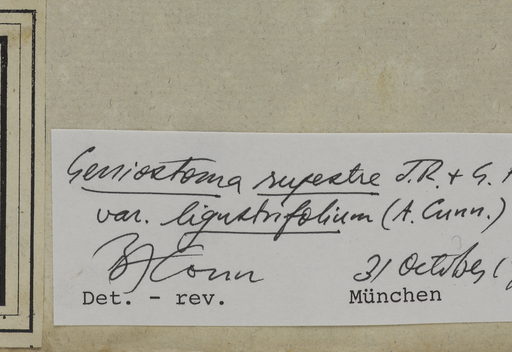 Geniostoma rupestre J.R. & G.
var. ligustrifolium (A. Cunn.)
BJConn 31 October
Det. - rev. München